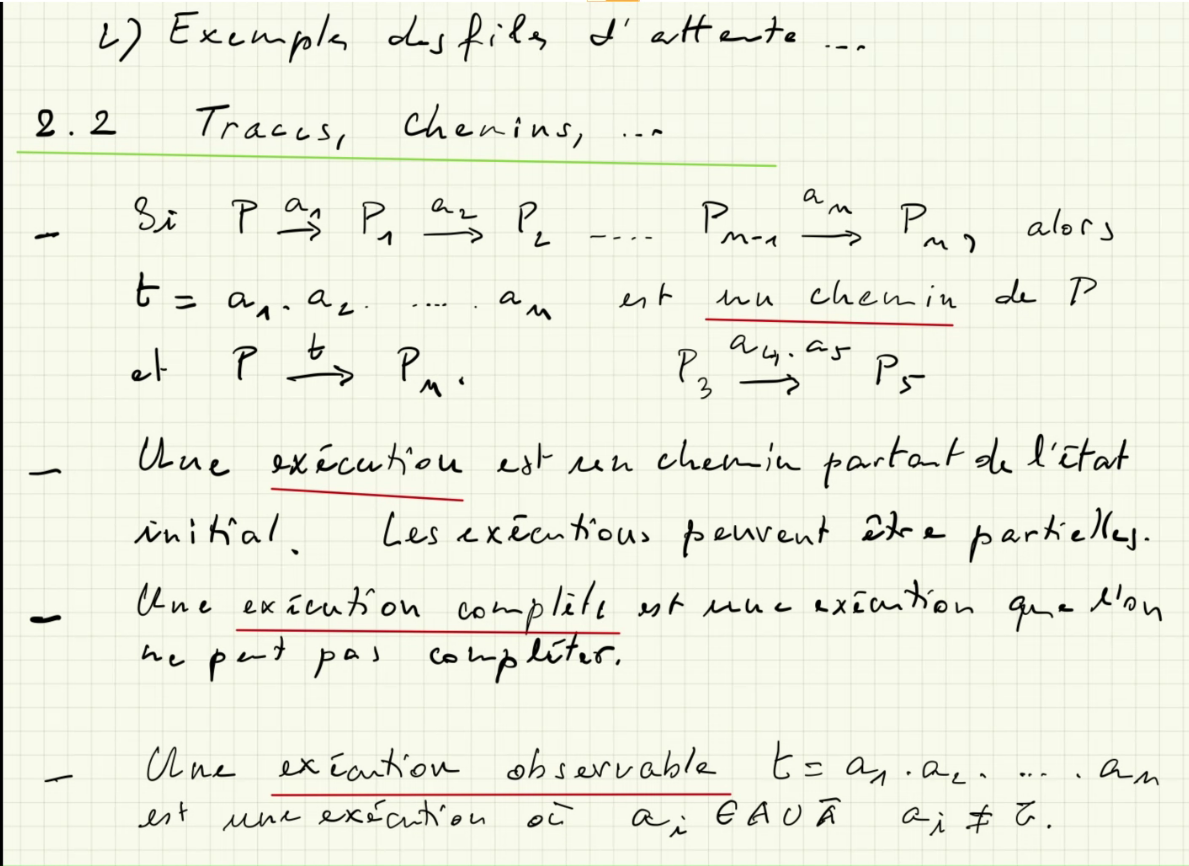 2) Exemples des files d'attente ...
2.2 Traces, chemins, ...
- Si P -a₁→ P₁ -a₂→ P₂ ..... Pₙ₋₁ -aₙ→ Pₙ, alors
t = a₁. a₂. .... . aₙ est un chemin de P
et P -t→ Pₙ. P₃ -a₄.a₅→ P₅
- Une exécution est un chemin partant de l'état
initial. Les exécutions peuvent être partielles.
- Une exécution complète est une exécution que l'on
ne peut pas compléter.
- Une exécution observable t = a₁.a₂. ... . aₙ
est une exécution où aᵢ ∈ A ∪ Ā aᵢ ≠ τ.